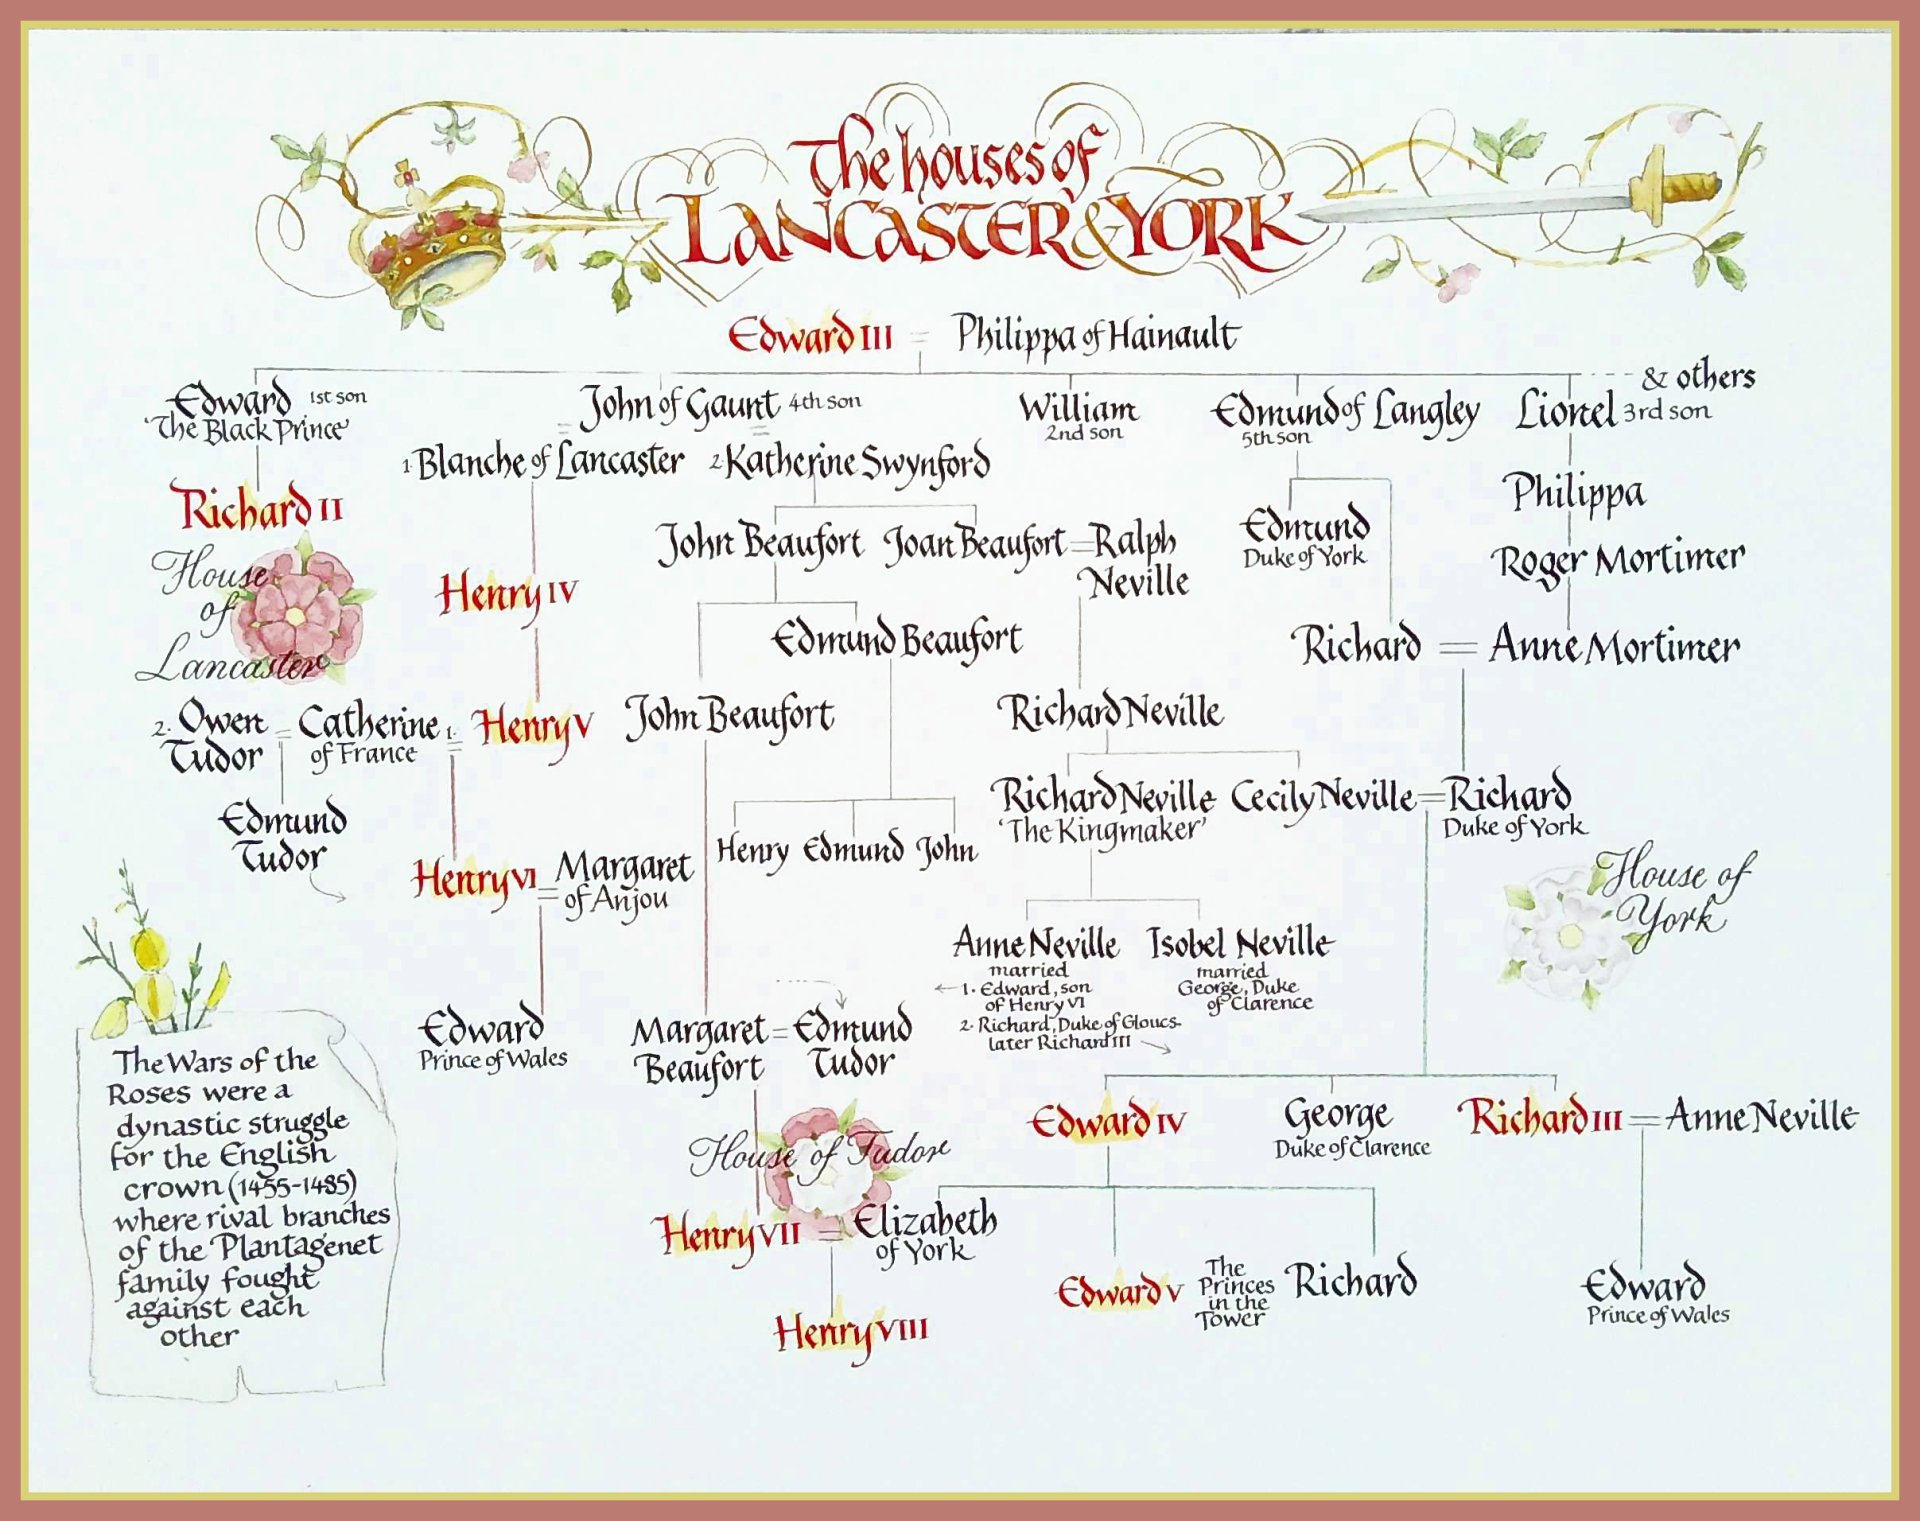 The houses of
LANCASTER & YORK
Edward III = Philippa of Hainault
Edward 1st son
'The Black Prince'
John of Gaunt 4th son
William
2nd son
Edmund of Langley
5th son
Lionel 3rd son
& others
1. Blanche of Lancaster 2. Katherine Swynford
Richard II
Philippa
House
of
Lancaster
John Beaufort Joan Beaufort = Ralph
Neville
Edmund
Duke of York
Roger Mortimer
Henry IV
Edmund Beaufort
Richard = Anne Mortimer
2. Owen
Tudor
= Catherine
of France
1.
=
Henry V
John Beaufort
Richard Neville
Edmund
Tudor
Richard Neville
'The Kingmaker'
Cecily Neville = Richard
Duke of York
Henry Edmund John
Henry VI = Margaret
of Anjou
House of
York
Anne Neville
married
1. Edward, son
of Henry VI
2. Richard, Duke of Gloucs.
later Richard III
Isobel Neville
married
George, Duke
of Clarence
Edward
Prince of Wales
Margaret
Beaufort
= Edmund
Tudor
The Wars of the
Roses were a
dynastic struggle
for the English
crown (1455-1485)
where rival branches
of the Plantagenet
family fought
against each
other
Edward IV
George
Duke of Clarence
Richard III = Anne Neville
House of Tudor
Henry VII = Elizabeth
of York
Edward V
The
Princes
in the
Tower
Richard
Edward
Prince of Wales
Henry VIII